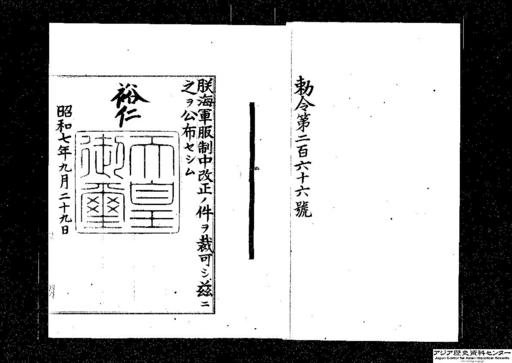 勅令第二百六十六號
朕海軍服制中改正ノ件ヲ裁可シ茲ニ
之ヲ公布セシム
裕仁
天皇
御璽
昭和七年九月二十九日
アジア歴史資料センター
Japan Center for Asian Historical Records